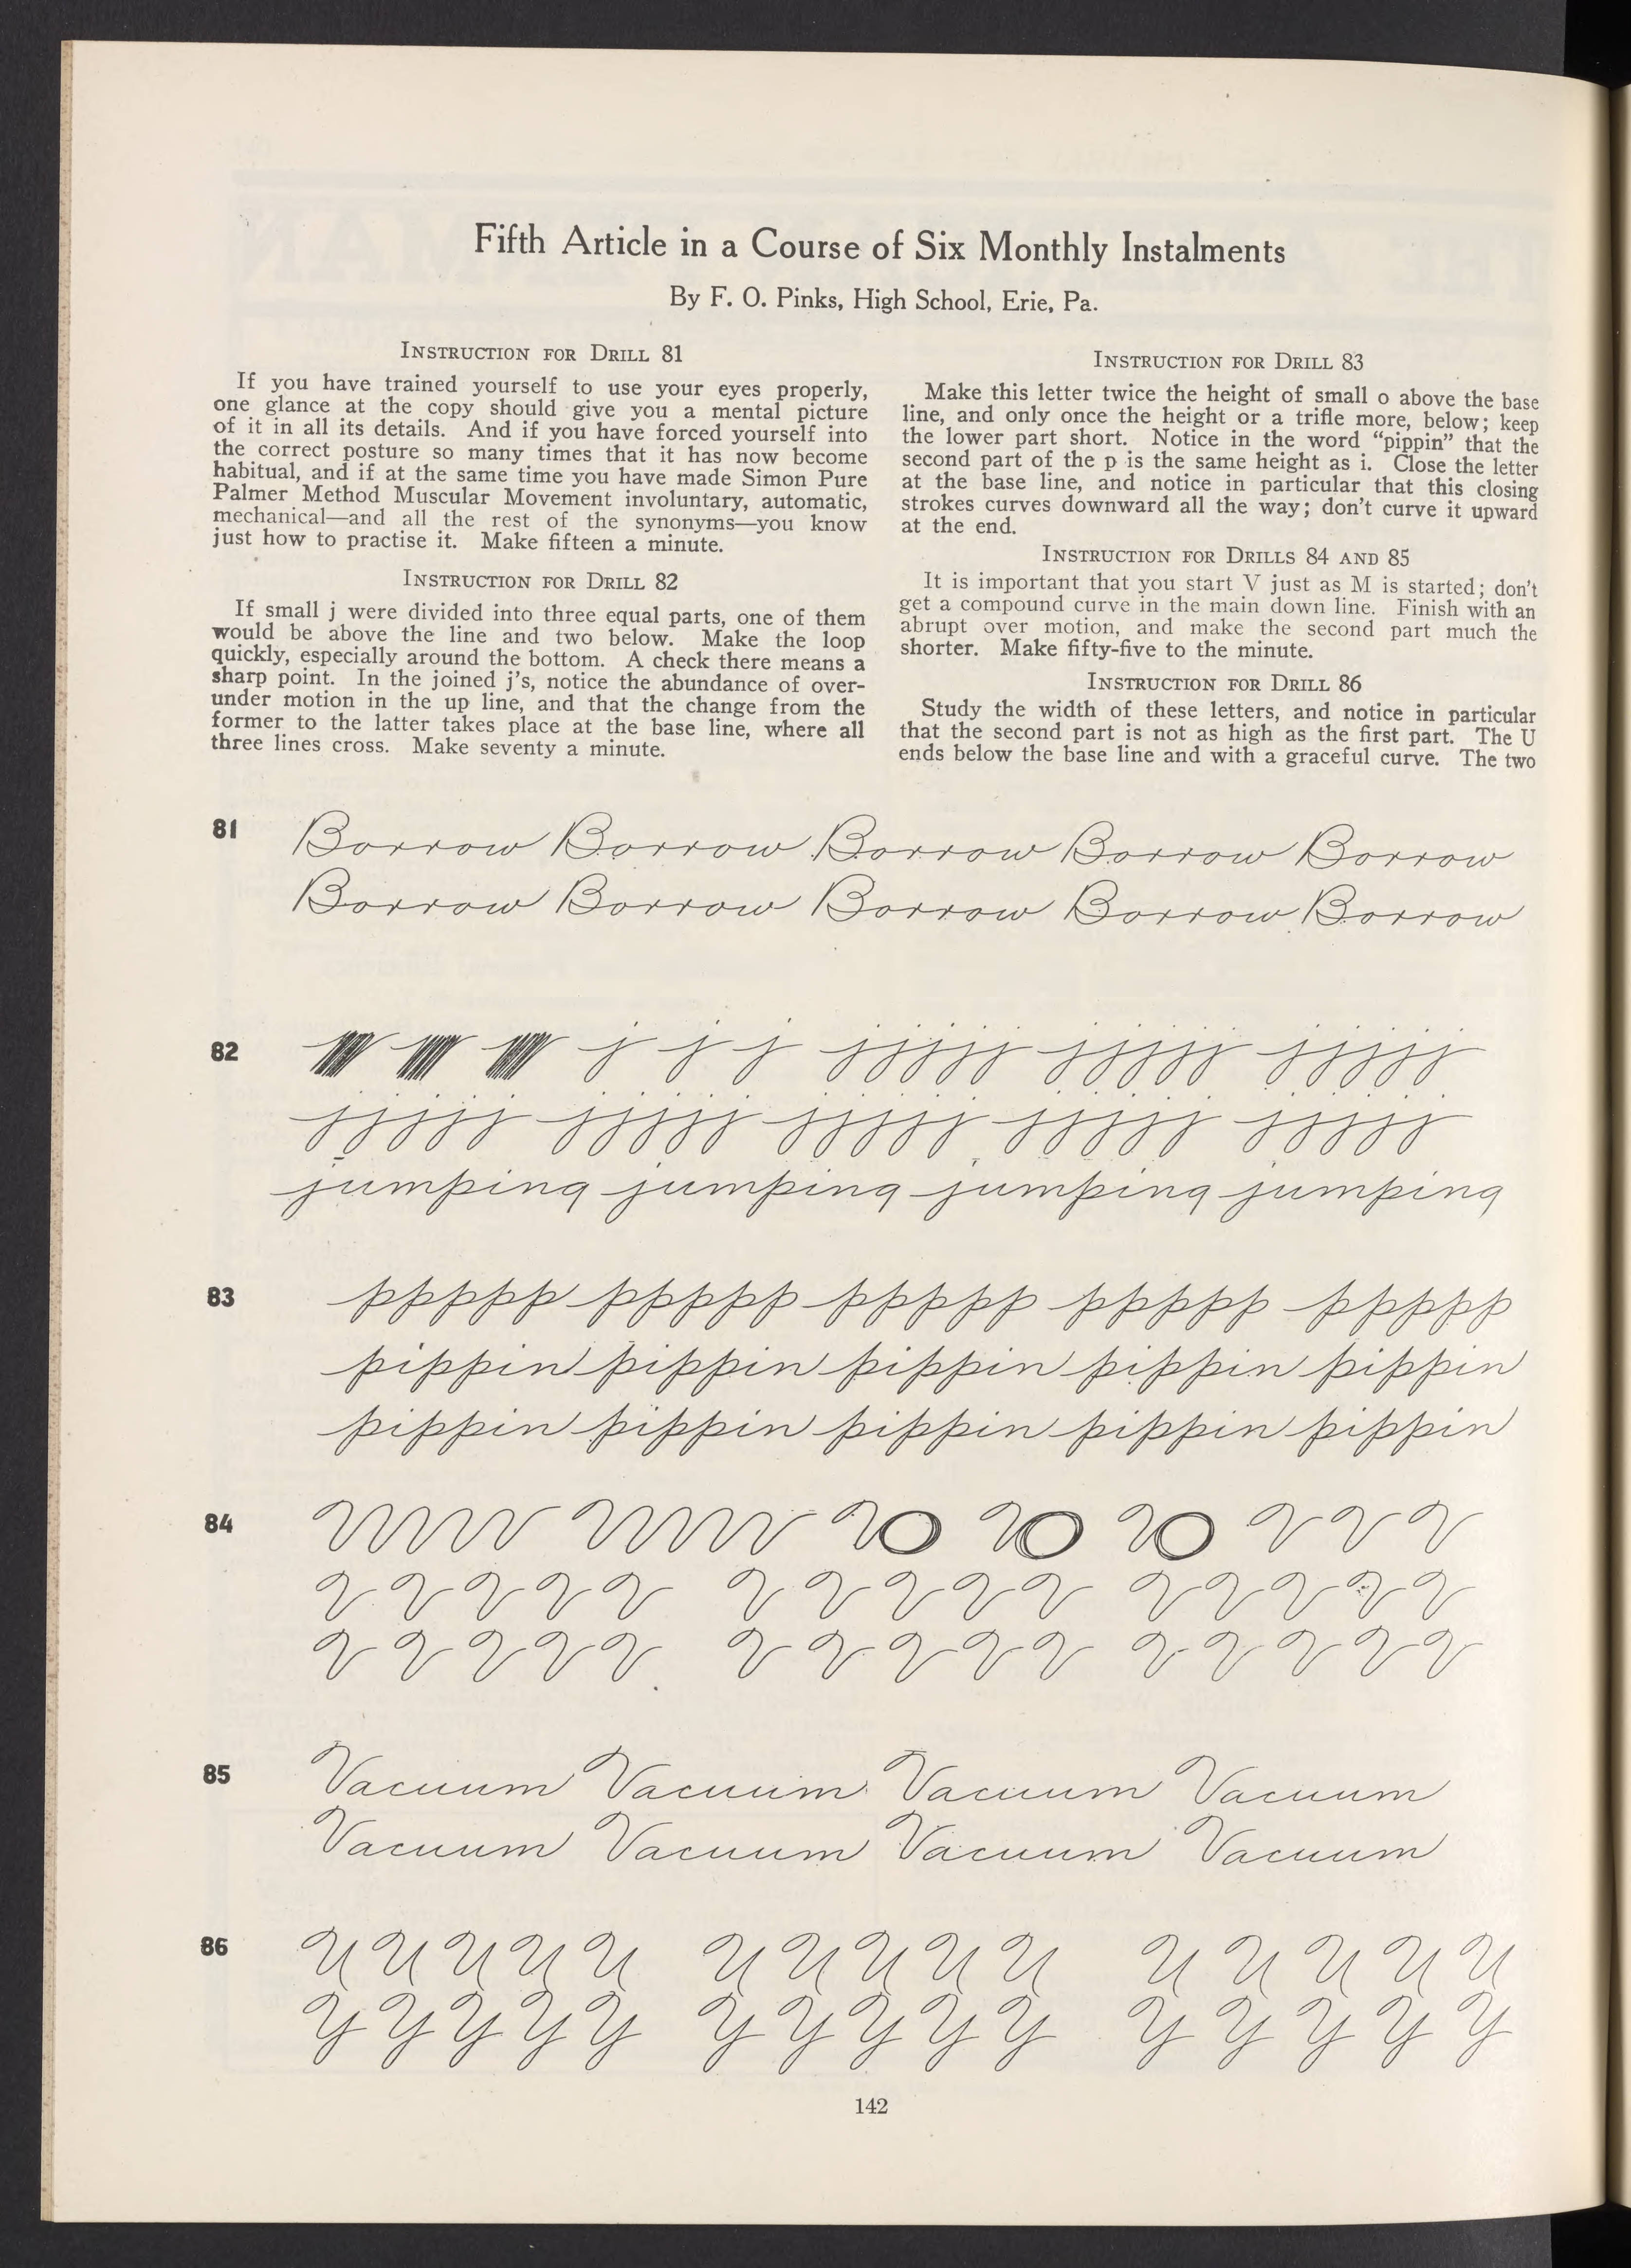 Fifth Article in a Course of Six Monthly Instalments
By F. O. Pinks, High School, Erie, Pa.
INSTRUCTION FOR DRILL 81
If you have trained yourself to use your eyes properly,
one glance at the copy should give you a mental picture
of it in all its details. And if you have forced yourself into
the correct posture so many times that it has now become
habitual, and if at the same time you have made Simon Pure
Palmer Method Muscular Movement involuntary, automatic,
mechanical—and all the rest of the synonyms—you know
just how to practise it. Make fifteen a minute.
INSTRUCTION FOR DRILL 82
If small j were divided into three equal parts, one of them
would be above the line and two below. Make the loop
quickly, especially around the bottom. A check there means a
sharp point. In the joined j's, notice the abundance of over-
under motion in the up line, and that the change from the
former to the latter takes place at the base line, where all
three lines cross. Make seventy a minute.
INSTRUCTION FOR DRILL 83
Make this letter twice the height of small o above the base
line, and only once the height or a trifle more, below; keep
the lower part short. Notice in the word "pippin" that the
second part of the p is the same height as i. Close the letter
at the base line, and notice in particular that this closing
strokes curves downward all the way; don't curve it upward
at the end.
INSTRUCTION FOR DRILLS 84 AND 85
It is important that you start V just as M is started; don't
get a compound curve in the main down line. Finish with an
abrupt over motion, and make the second part much the
shorter. Make fifty-five to the minute.
INSTRUCTION FOR DRILL 86
Study the width of these letters, and notice in particular
that the second part is not as high as the first part. The U
ends below the base line and with a graceful curve. The two
81 Borrow Borrow Borrow Borrow Borrow
Borrow Borrow Borrow Borrow Borrow
82 j j j jjjjj jjjjj jjjjj
jjjjj jjjjj jjjjj jjjjj jjjjj
jumping jumping jumping jumping
83 ppppp ppppp ppppp ppppp ppppp
pippin pippin pippin pippin pippin
pippin pippin pippin pippin pippin
84 V V V
V V V V V V V V V V V V V V V
V V V V V V V V V V V V V V V
85 Vacuum Vacuum Vacuum Vacuum
Vacuum Vacuum Vacuum Vacuum
86 U U U U U U U U U U U U U U U
Y Y Y Y Y Y Y Y Y Y Y Y Y Y Y
142